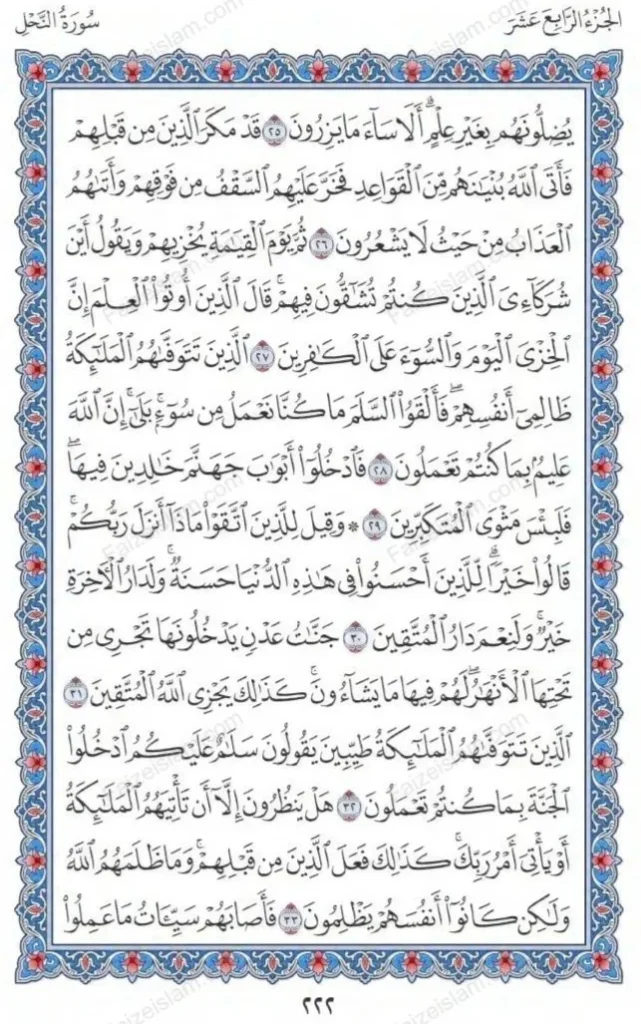 الجُزْءُ الرَّابِعَ عَشَرَ
سُورَةُ النَّحْلِ
يُضِلُّونَهُم بِغَيْرِ عِلْمٍ ۗ أَلَا سَآءَ مَا يَزِرُونَ ٢٥ قَدْ مَكَرَ ٱلَّذِينَ مِن قَبْلِهِمْ
فَأَتَى ٱللَّهُ بُنْيَـٰنَهُم مِّنَ ٱلْقَوَاعِدِ فَخَرَّ عَلَيْهِمُ ٱلسَّقْفُ مِن فَوْقِهِمْ وَأَتَىٰهُمُ
ٱلْعَذَابُ مِنْ حَيْثُ لَا يَشْعُرُونَ ٢٦ ثُمَّ يَوْمَ ٱلْقِيَـٰمَةِ يُخْزِيهِمْ وَيَقُولُ أَيْنَ
شُرَكَآءِىَ ٱلَّذِينَ كُنتُمْ تُشَـٰٓقُّونَ فِيهِمْ ۚ قَالَ ٱلَّذِينَ أُوتُوا۟ ٱلْعِلْمَ إِنَّ
ٱلْخِزْىَ ٱلْيَوْمَ وَٱلسُّوٓءَ عَلَى ٱلْكَـٰفِرِينَ ٢٧ ٱلَّذِينَ تَتَوَفَّىٰهُمُ ٱلْمَلَـٰٓئِكَةُ
ظَالِمِىٓ أَنفُسِهِمْ ۖ فَأَلْقَوُا۟ ٱلسَّلَمَ مَا كُنَّا نَعْمَلُ مِن سُوٓءٍۭ ۚ بَلَىٰٓ إِنَّ ٱللَّهَ
عَلِيمٌۢ بِمَا كُنتُمْ تَعْمَلُونَ ٢٨ فَٱدْخُلُوٓا۟ أَبْوَٰبَ جَهَنَّمَ خَـٰلِدِينَ فِيهَا ۖ
فَلَبِئْسَ مَثْوَى ٱلْمُتَكَبِّرِينَ ٢٩ ۞ وَقِيلَ لِلَّذِينَ ٱتَّقَوْا۟ مَاذَآ أَنزَلَ رَبُّكُمْ ۚ
قَالُوا۟ خَيْرًا ۗ لِّلَّذِينَ أَحْسَنُوا۟ فِى هَـٰذِهِ ٱلدُّنْيَا حَسَنَةٌ ۚ وَلَدَارُ ٱلْـَٔاخِرَةِ
خَيْرٌ ۚ وَلَنِعْمَ دَارُ ٱلْمُتَّقِينَ ٣٠ جَنَّـٰتُ عَدْنٍ يَدْخُلُونَهَا تَجْرِى مِن
تَحْتِهَا ٱلْأَنْهَـٰرُ ۖ لَهُمْ فِيهَا مَا يَشَآءُونَ ۚ كَذَٰلِكَ يَجْزِى ٱللَّهُ ٱلْمُتَّقِينَ ٣١
ٱلَّذِينَ تَتَوَفَّىٰهُمُ ٱلْمَلَـٰٓئِكَةُ طَيِّبِينَ ۙ يَقُولُونَ سَلَـٰمٌ عَلَيْكُمُ ٱدْخُلُوا۟
ٱلْجَنَّةَ بِمَا كُنتُمْ تَعْمَلُونَ ٣٢ هَلْ يَنظُرُونَ إِلَّآ أَن تَأْتِيَهُمُ ٱلْمَلَـٰٓئِكَةُ
أَوْ يَأْتِىَ أَمْرُ رَبِّكَ ۚ كَذَٰلِكَ فَعَلَ ٱلَّذِينَ مِن قَبْلِهِمْ ۚ وَمَا ظَلَمَهُمُ ٱللَّهُ
وَلَـٰكِن كَانُوٓا۟ أَنفُسَهُمْ يَظْلِمُونَ ٣٣ فَأَصَابَهُمْ سَيِّـَٔاتُ مَا عَمِلُوا۟
٢٢٢
Faizeislam.com